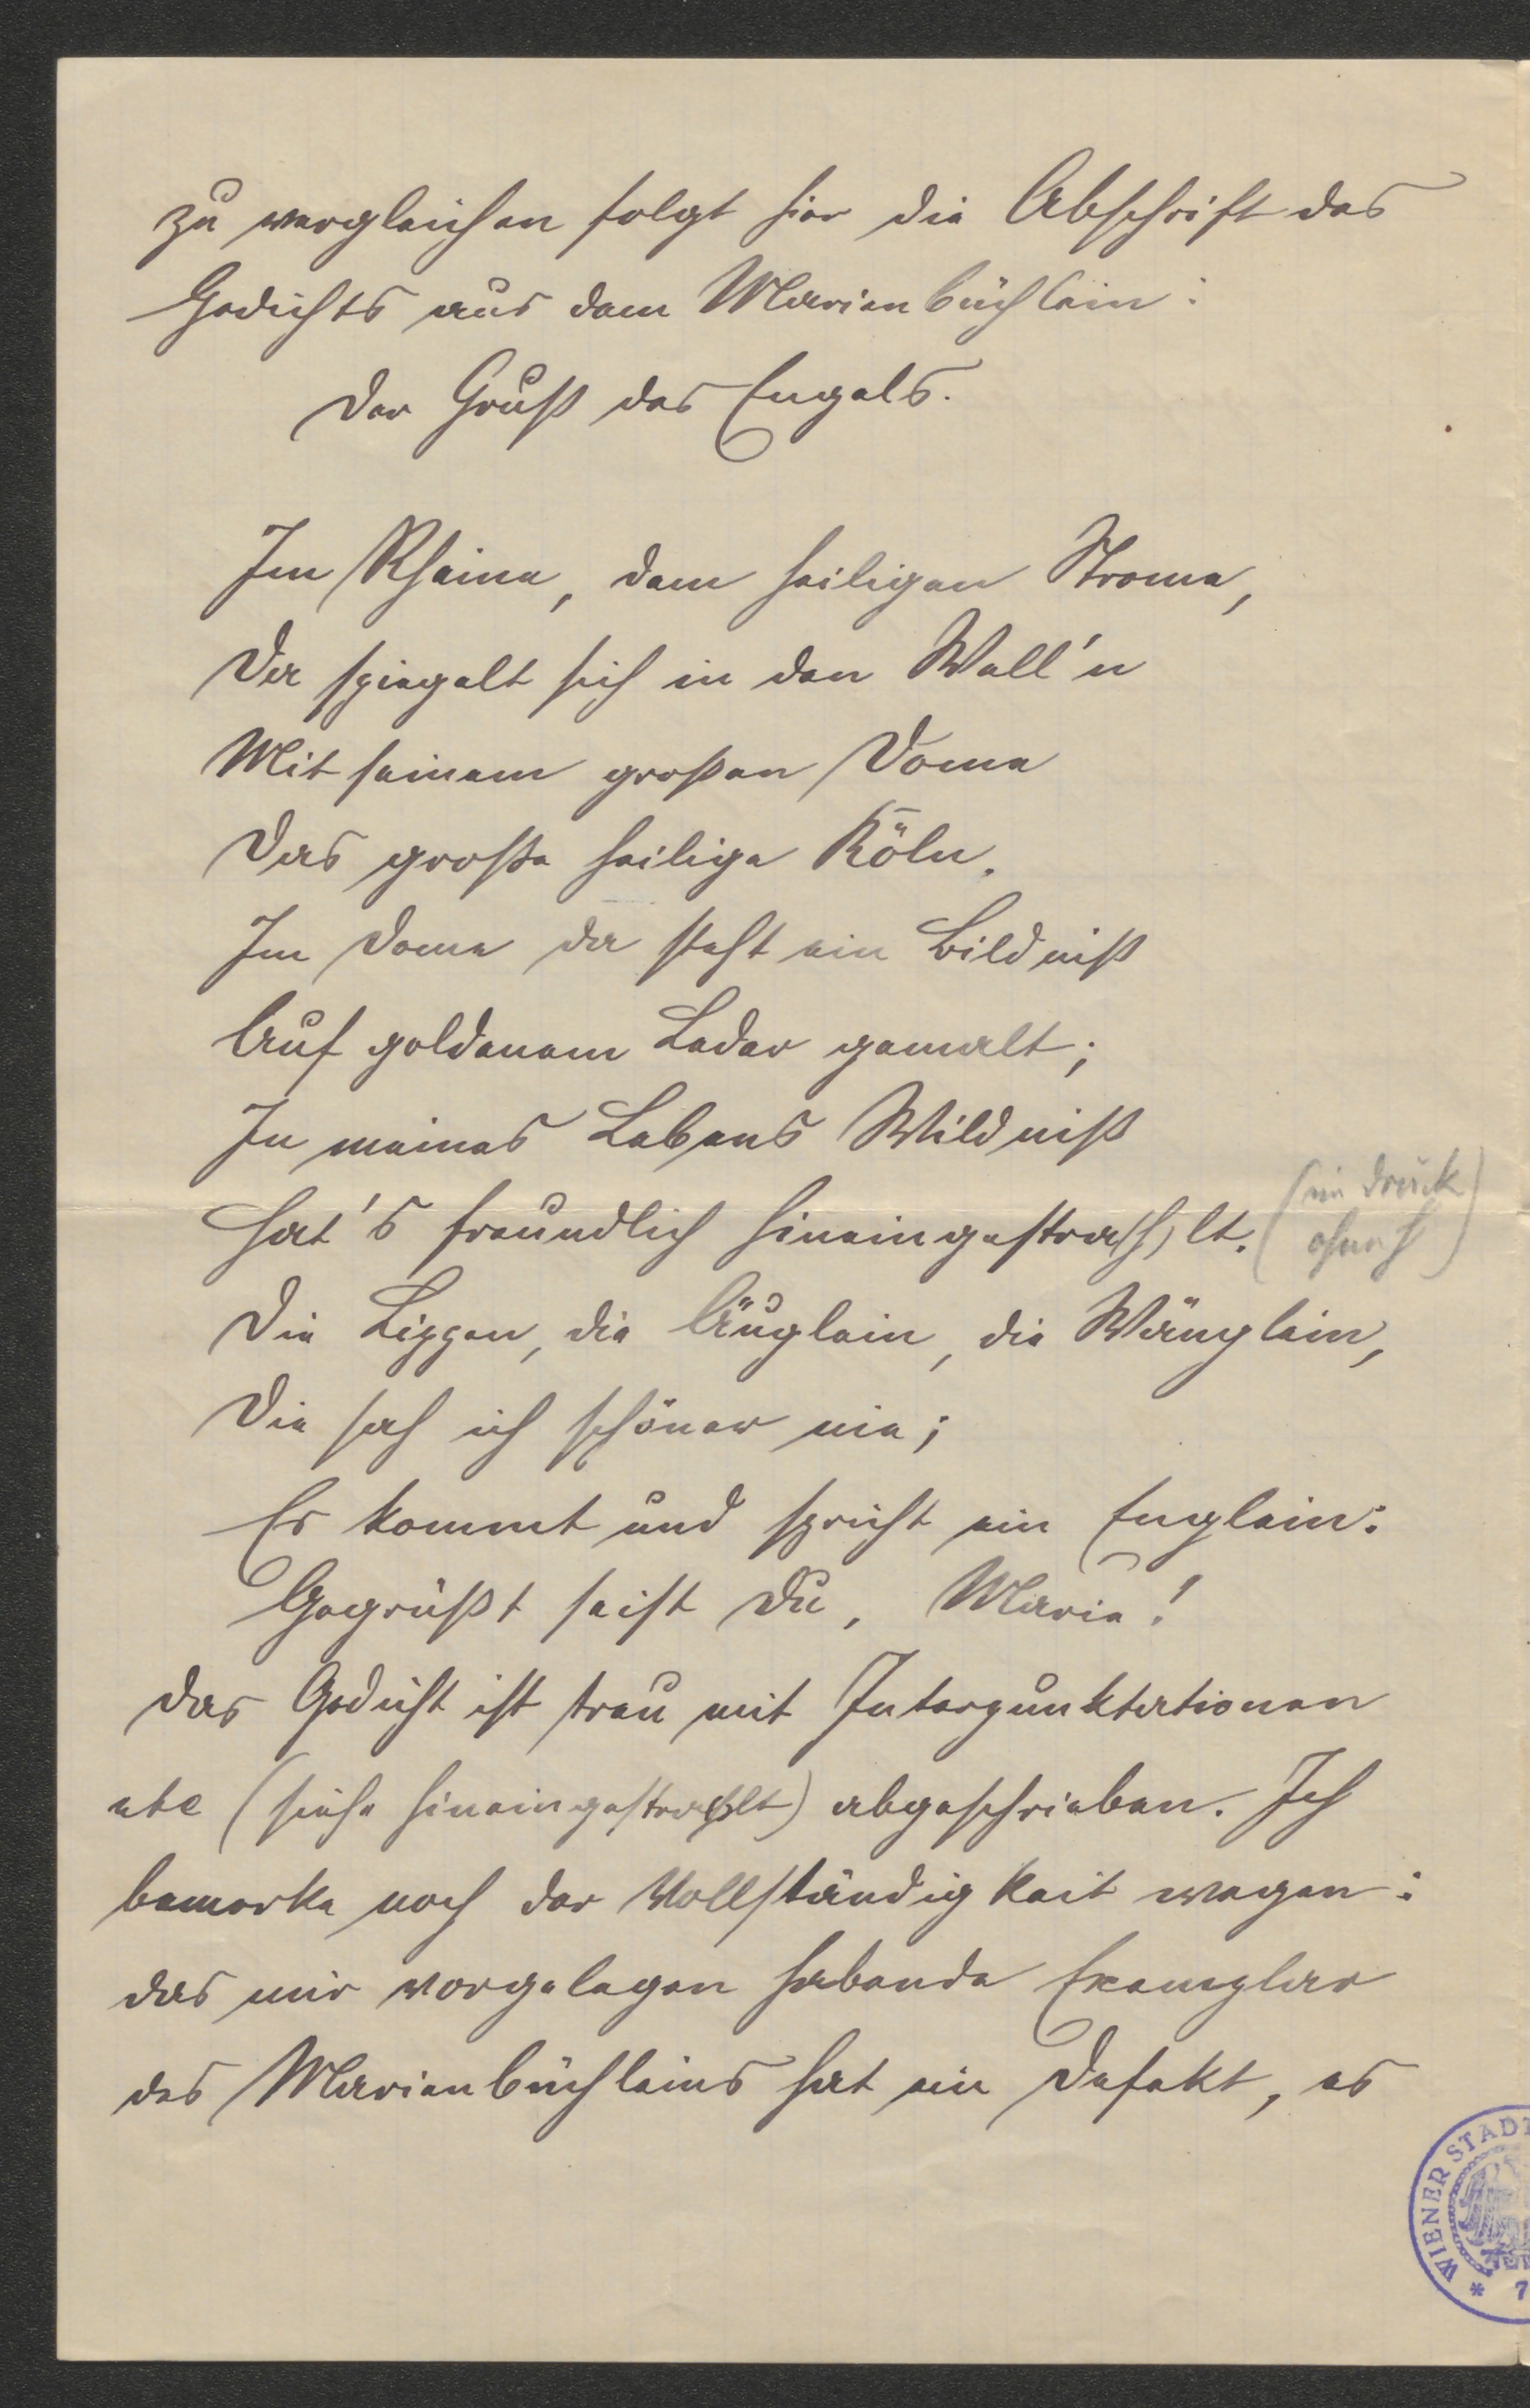 zu vergleichen folgt hier die Abschrift des
Gedichts aus dem Marienbüchlein:
Der Gruß des Engels.
Im Rheine, dem heiligen Strome,
Da spiegelt sich in den Well'n
Mit seinem großen Dome
Das große heilige Köln.
Im Dome da steht ein Bildniß
Auf goldenem Leder gemalt;
In meines Lebens Wildniß
Hat's freundlich hineingestra(h)lt.
(im Druck
ohne h)
Die Lippen, die Äuglein, die Wänglein,
Die sah ich schöner nie;
Er kommt und spricht ein Englein:
Gegrüßt seist Du, Marie!
Das Gedicht ist treu mit Interpunktationen
etc (siehe hineingestrahlt) abgeschrieben. Ich
bemerke noch der Vollständigkeit wegen:
das mir vorgelegen habende Exemplar
des Marienbüchleins hat ein Defekt, es
WIENER STADT
* 7